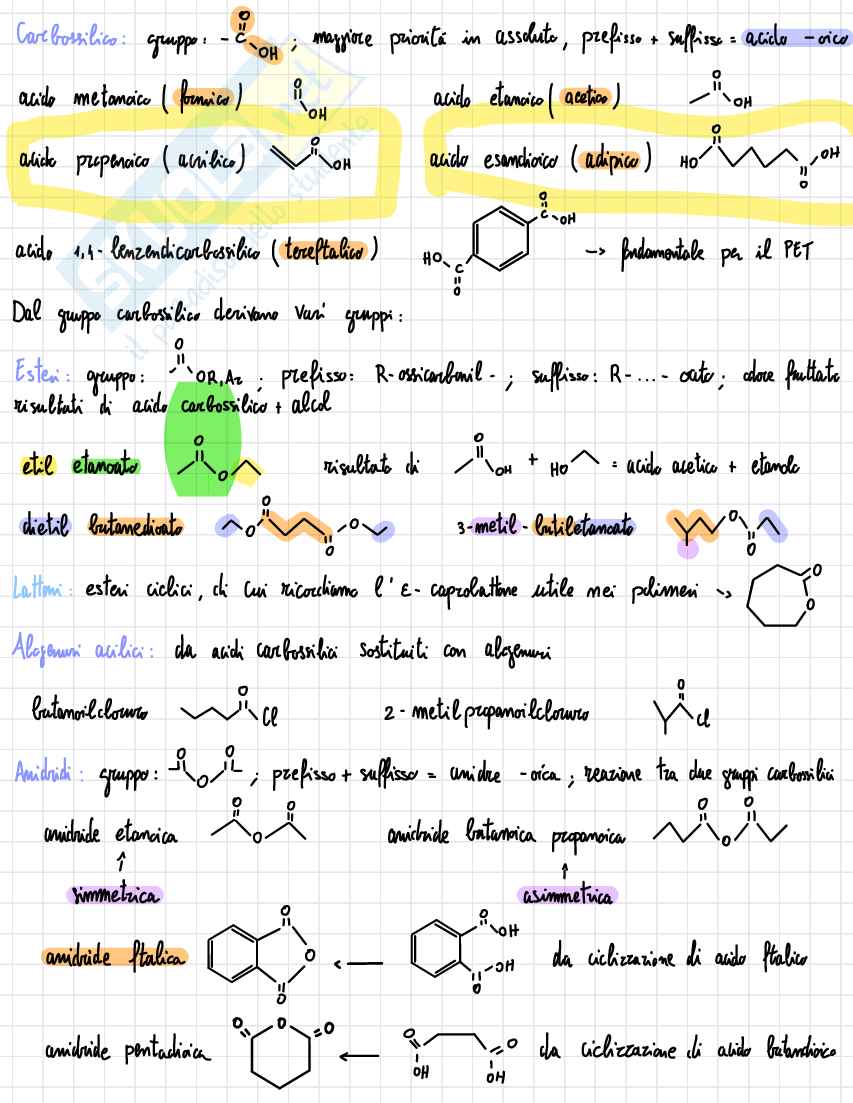 Carbossilico: gruppo: -C(=O)OH ; maggiore priorità in assoluto, prefisso + suffisso = acido -oico
acido metanoico (formico) O OH acido etanoico (acetico) O OH
acido propenoico (acrilico) O OH acido esandioico (adipico) HO O O OH
acido 1,4-benzendicarbossilico (tereftalico) HO C O O C OH → fondamentale per il PET
Dal gruppo carbossilico derivano vari gruppi:
Esteri: gruppo: O OR,Ar ; prefisso: R-ossicarbonil- ; suffisso: R-...-oato ; odore fruttato
risultati di acido carbossilico + alcol
etil etanoato O O risultato di O OH + HO = acido acetico + etanolo
dietil butanedioato O O O O 3-metil-butiletanoato O O
Lattoni: esteri ciclici, di cui ricordiamo l'ε-caprolattone utile nei polimeri → O O
Alogenuri acilici: da acidi carbossilici sostituiti con alogenuri
butanoilcloruro O Cl 2-metilpropanoilcloruro O Cl
Anidridi: gruppo: O O O ; prefisso + suffisso = anidre -oica ; reazione tra due gruppi carbossilici
anidride etanoica O O O anidride butanoica propanoica O O O
simmetrica asimmetrica
anidride ftalica O O O ← O OH OH O da ciclizzazione di acido ftalico
anidride pentadioica O O O ← O OH O OH da ciclizzazione di acido butandioico
skuola.net
il paradiso dello studente